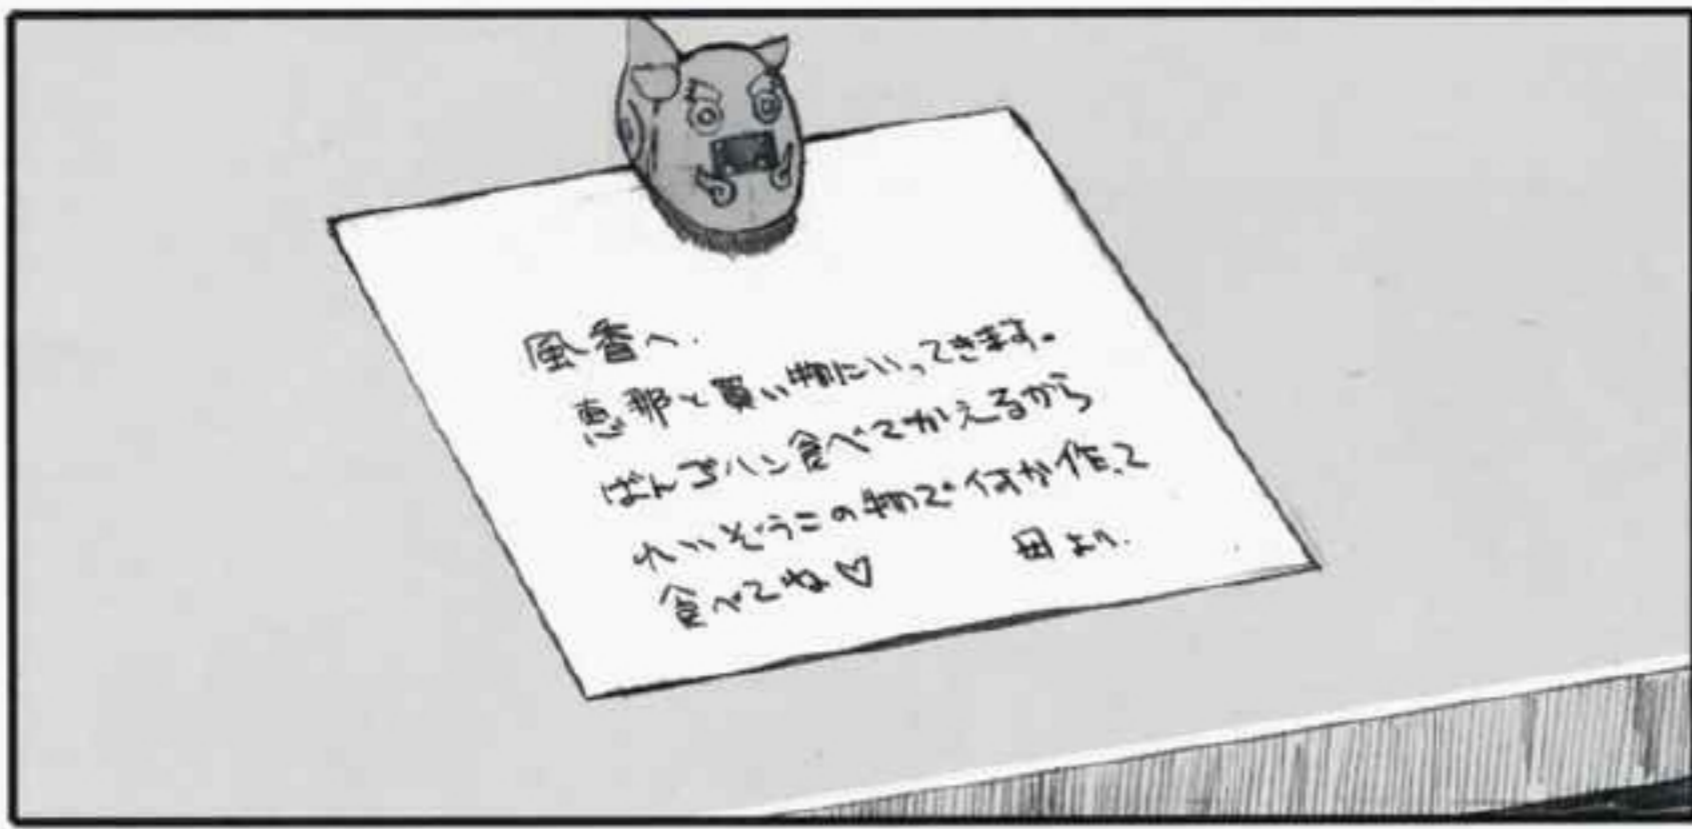 風香へ.
恵那と買い物にいってきます。
ばんごハン食べてかえるから
れいぞうこの物で何か作って
食べてね♡
母より.